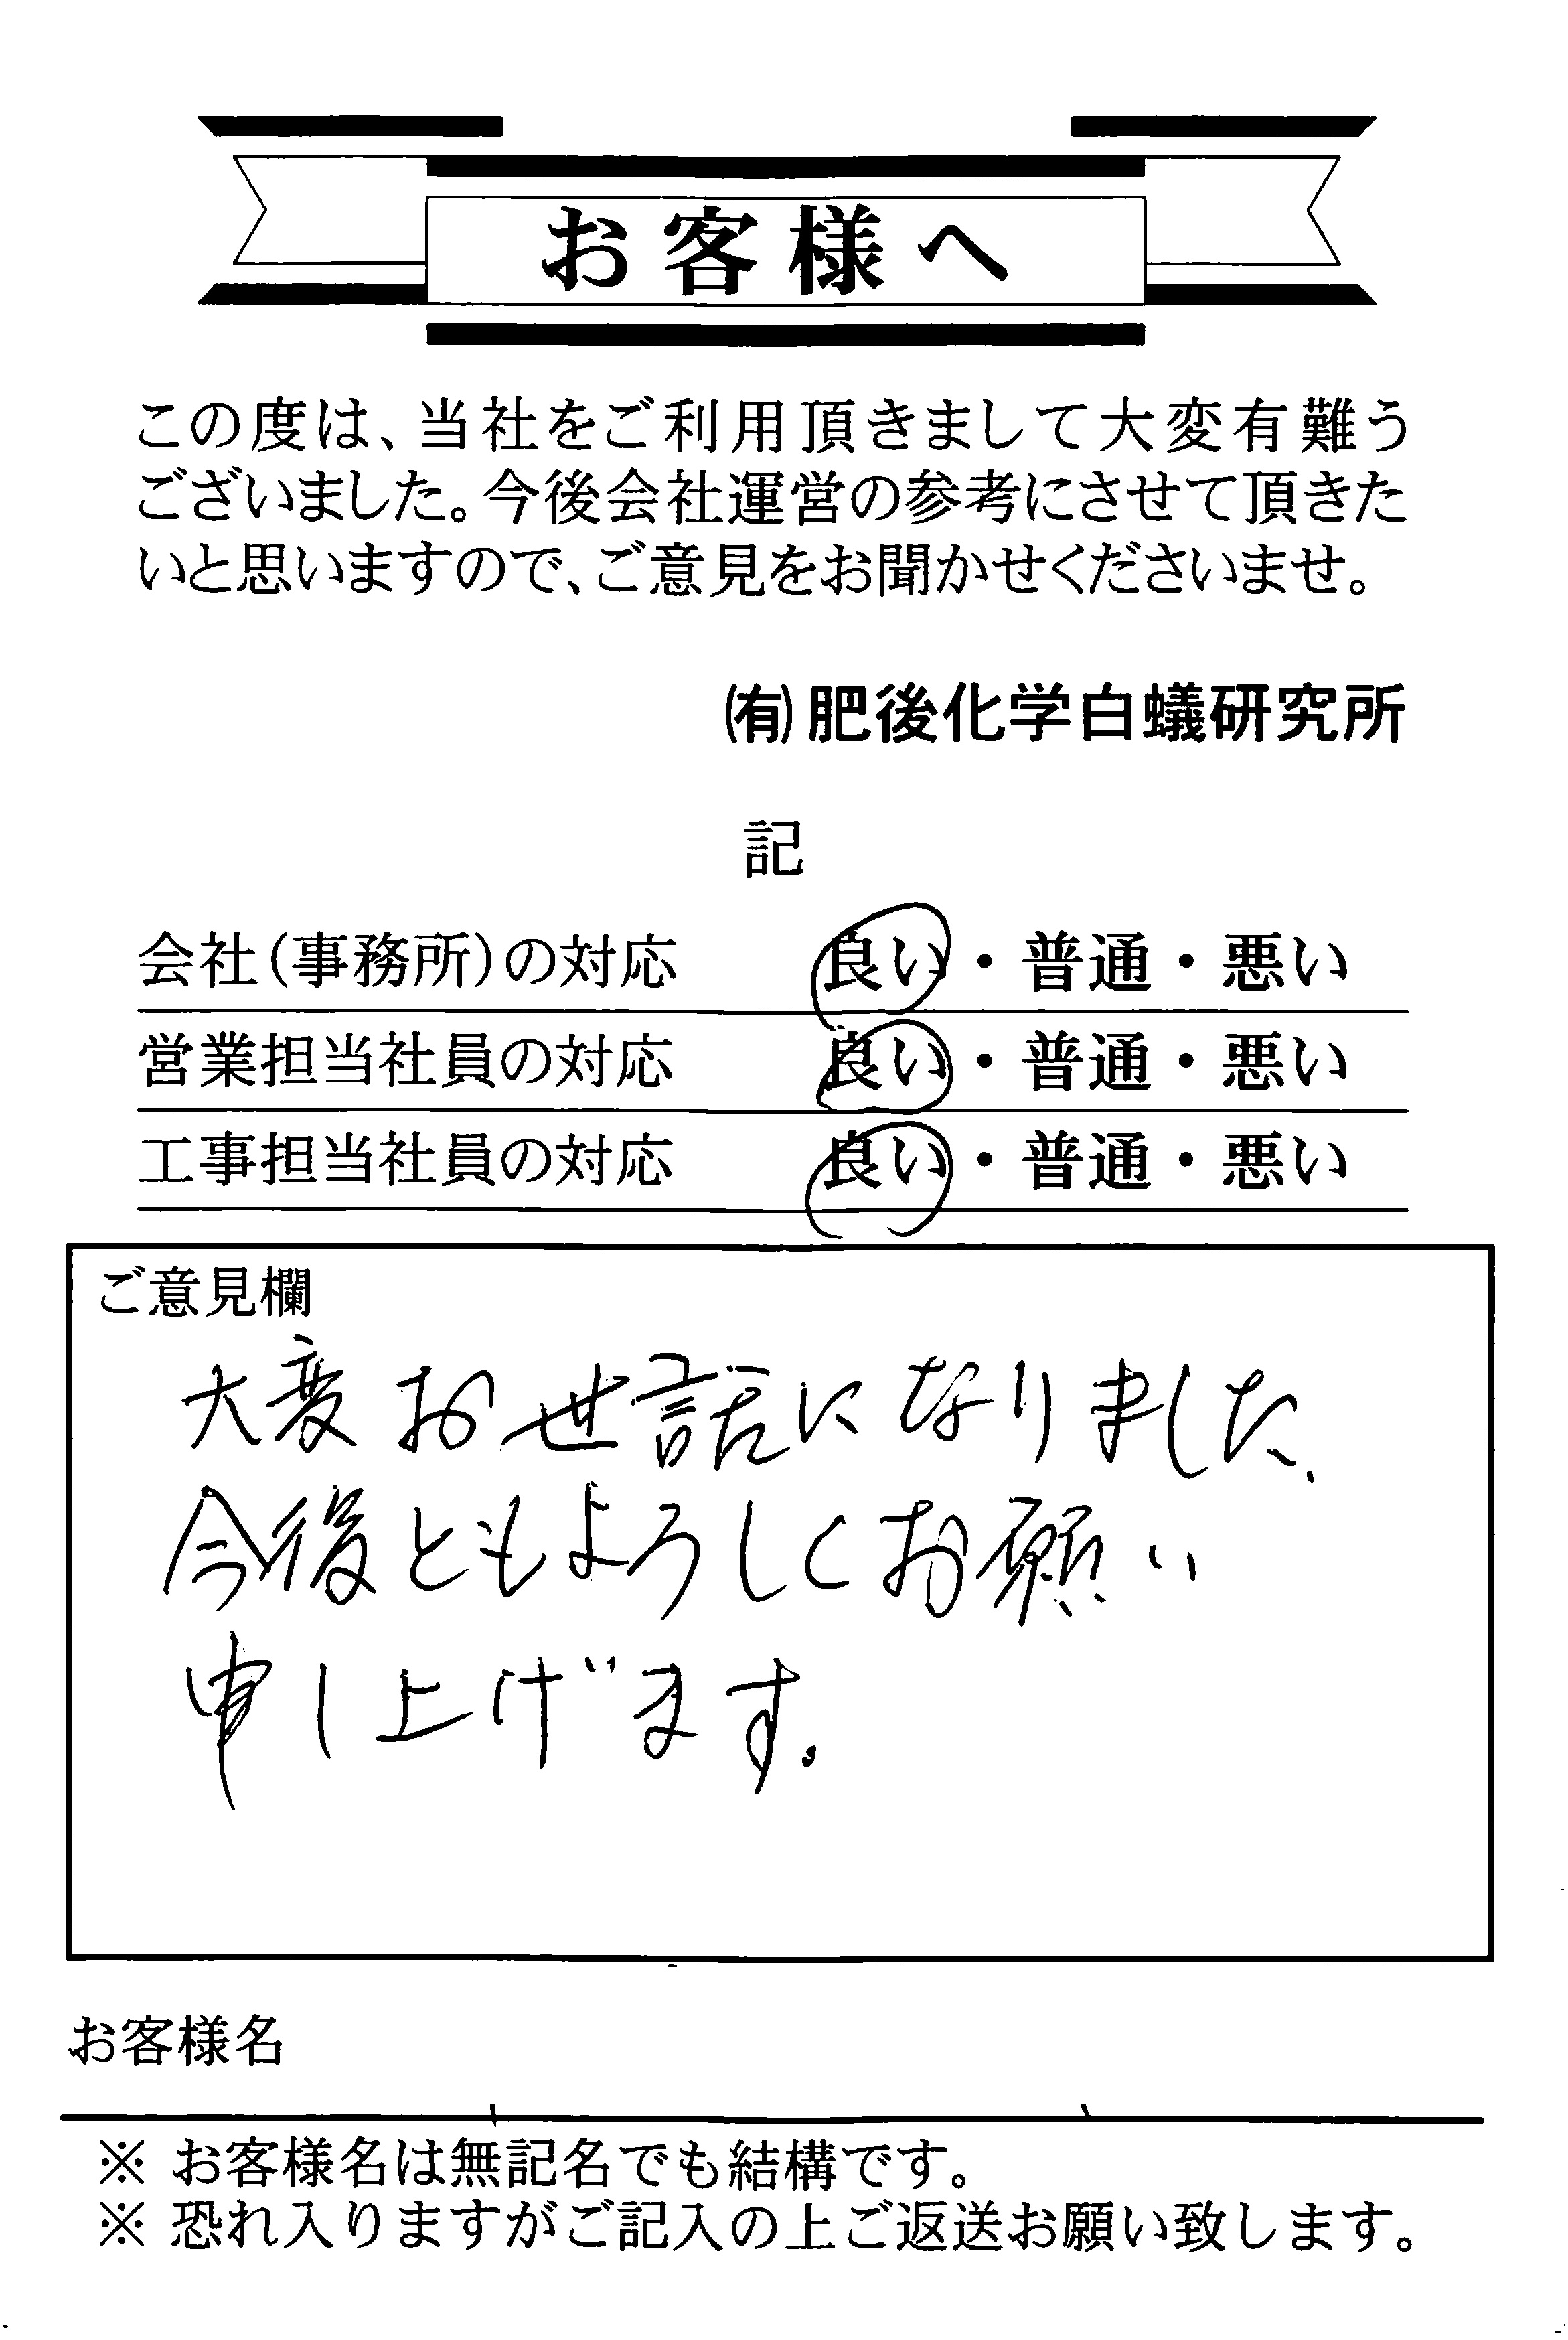 お客様へ
この度は、当社をご利用頂きまして大変有難う
ございました。今後会社運営の参考にさせて頂きた
いと思いますので、ご意見をお聞かせくださいませ。
㈲肥後化学白蟻研究所
記
会社(事務所)の対応 良い・普通・悪い
営業担当社員の対応 良い・普通・悪い
工事担当社員の対応 良い・普通・悪い
ご意見欄
大変お世話になりました、
今後ともよろしくお願い
申し上げます。
お客様名
※ お客様名は無記名でも結構です。
※ 恐れ入りますがご記入の上ご返送お願い致します。